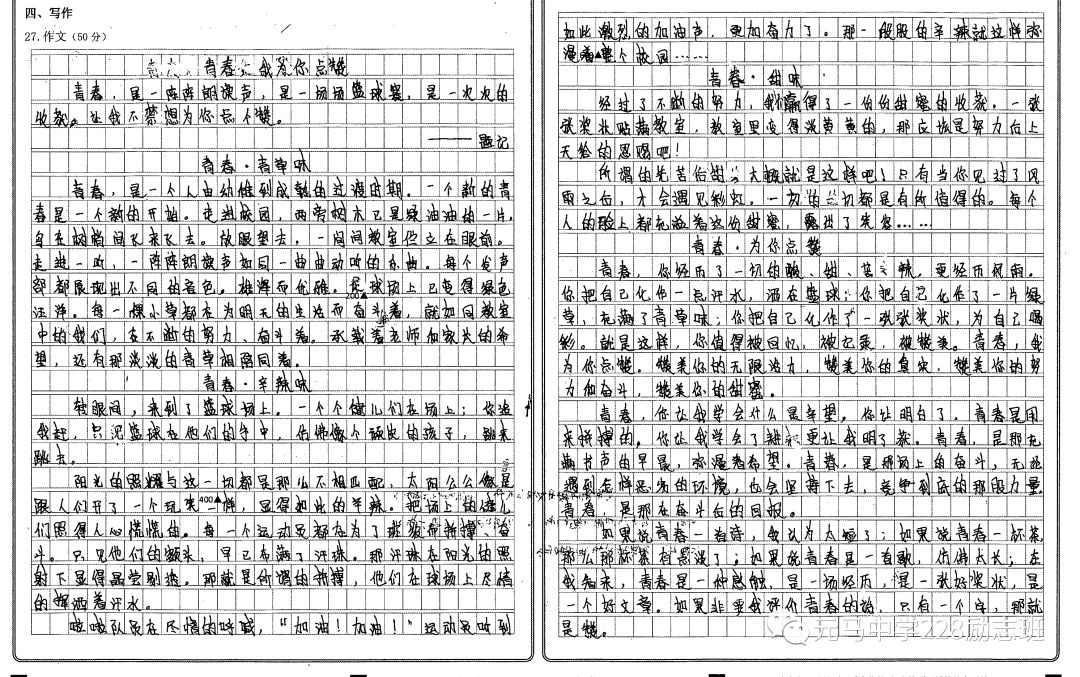 四、写作
27.作文(50分)
青春,我为你点赞
青春,是一阵阵朗读声,是一场场篮球赛,是一次次的
收获。让我不禁想为你点个赞。
——题记
青春·青草味
青春,是一个人由幼稚到成熟的过渡时期。一个新的青
春是一个新的开始。走进校园,两旁树木已是绿油油的一片,
鸟在树梢间飞来飞去。放眼望去,一间间教室伫立在眼前。
走进一听,一阵阵朗读声如同一曲曲动听的乐曲。每个发声
部都展现出不同的音色。雄浑而优雅。足球场上已变得绿色
汪洋。每一棵小草都在为明天的生活而奋斗着,就如同教室
中的我们,在不断的努力、奋斗着。承载着老师和家长的希
望,还有那淡淡的青草相陪同着。
青春·辛辣味
转眼间,来到了篮球场上。一个个健儿们在场上;你追
我赶,只见篮球在他们的手中,仿佛像个顽皮的孩子,跳来
跳去。
阳光的照耀与这一切都是那么不相匹配,太阳公公像是
跟人们开了一个玩笑一样,显得如此的辛辣。把场上的健儿
们照得人心慌慌的。每一个运动员都在为了班级而拼搏、奋
斗。只见他们的额头,早已布满了汗珠。那汗珠在阳光的照
射下显得晶莹剔透。那就是所谓的拼搏,他们在球场上尽情
的挥洒着汗水。
啦啦队员在尽情的呼喊,“加油!加油!”运动员听到
如此激烈的加油声,更加奋力了。那一股股的辛辣就这样弥
漫着整个校园……
青春·甜味
经过了不断的努力,我们赢得了一份份甜蜜的收获。一张
张奖状贴满教室,教室里变得淡黄黄的,那应该是努力后上
天给的恩赐吧!
所谓的先苦后甜大概就是这样吧!只有当你见过了风
雨之后,才会遇见彩虹。一切的一切都是有所值得的。每个
人的脸上都充溢着这份甜蜜,露出了笑容……
青春·为你点赞
青春,你经历了一切的酸、甜、苦、辣,更经历风雨。
你把自己化作一点汗水,洒在篮球;你把自己化作了一片绿
草,充满了青草味;你把自己化作了一张张奖状,为自己喝
彩。就是这样,你值得被回忆,被记录,被赞美。青春,我
为你点赞。赞美你的无限活力,赞美你的真实,赞美你的努
力和奋斗,赞美你的甜蜜。
青春,你让我学会什么是希望。你让明白了,青春是用
来拼搏的。你让我学会了耕耘更让我明了获。青春,是那充
满书声的早晨,弥漫着希望。青春,是那场上的奋斗,无论
遇到怎样恶劣的环境,也会坚持下去,竞争到底的那股力量。
青春,是那在奋斗后的回报。
如果说青春一首诗,我认为太短了;如果说青春一杯茶,
那么那杯茶有点淡了;如果说青春是一首歌,仿佛太长;在
我看来,青春是一种感触,是一场经历,是一张好奖状,是
一个好文章。如果非要我评价青春的话,只有一个字,那就
是赞。
200▲
400▲
元马中学228励志班